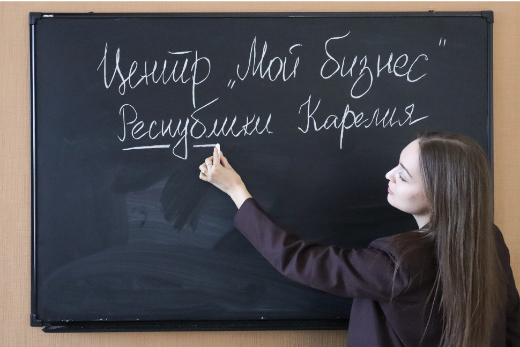 Центр „Мой бизнес"
Республики Карелия